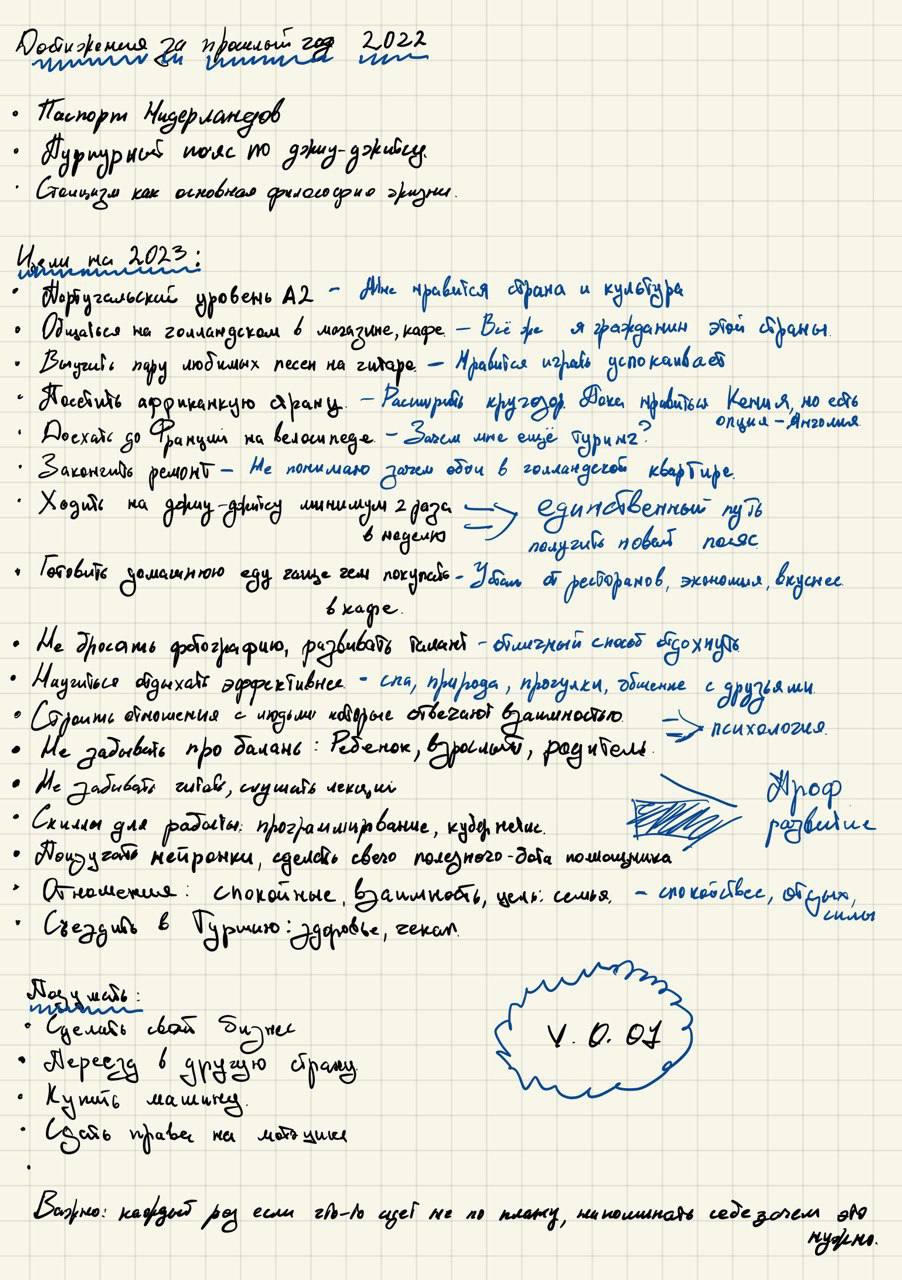 Достижения за прошлый год 2022
• Паспорт Нидерландов
• Пурпурный пояс по джиу-джитсу.
• Стоицизм как основная философия жизни.
Цели на 2023:
• Португальский уровень А2 – Мне нравится страна и культура
• Общаться на голландском в магазине, кафе. – Всё же я гражданин этой страны.
• Выучить пару любимых песен на гитаре. – Нравится играть успокаивает
• Посетить африканкую страну. – Расширить кругозор. Пока нравиться Кения, но есть
опция – Анголия
• Доехать до Франции на велосипеде. – Зачем мне ещё туринг?
• Закончить ремонт – Не понимаю зачем обои в голландской квартире.
• Ходить на джиу-джитсу минимум 2 раза => единственный путь
в неделю получить новый пояс.
• Готовить домашнюю еду чаще чем покупать – Устал от ресторанов, экономия, вкуснее
в кафе.
• Не бросать фотографию, развивать талант – отличный способ отдохнуть
• Научиться отдыхать эффективнее – спа, природа, прогулки, общение с друзьями
• Строить отношения с людьми которые отвечают взаимностью.
=> психология.
• Не забывать про баланс: Ребенок, взрослый, родитель.
• Не забывать читать, слушать лекции
Проф
развитие
• Скиллы для работы: программирование, кубернетис.
• Поизучать нейронки, сделать своего полезного бота помощника
• Отношения: спокойные, взаимность, цель: семья. – спокойствие, отдых,
силы
• Съездить в Турцию: здоровье, чекап.
Подумать:
• Сделать свой бизнес
• Переезд в другую страну
• Купить машину.
• Сдать права на мотоцикл
•
V. 0.01
Важно: каждый раз если что-то идет не по плану, напоминать себе зачем это
нужно.